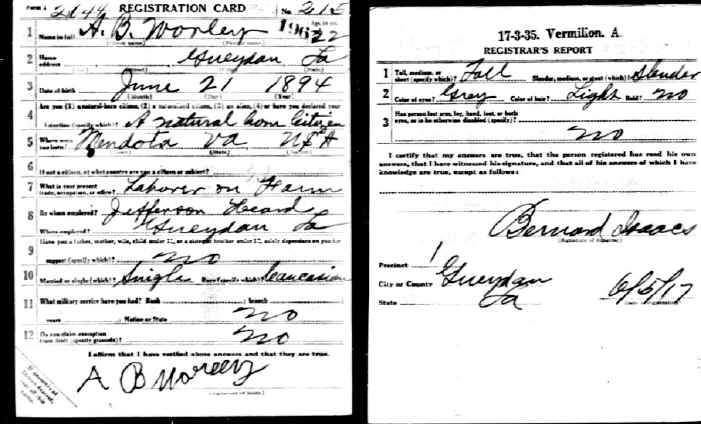 Form 1 2144 REGISTRATION CARD No. 215
1 Name in full A. B. Worley Age, in yrs. 22
2 Home address Gueydan La
3 Date of birth June 21 1894
(Month) (Day) (Year)
4 Are you (1) a natural-born citizen, (2) a naturalized citizen, (3) an alien, (4) or have you declared your
intention (specify which)? A natural born Citizen
5 Where were you born? Mendota Va USA
6 If not a citizen, of what country are you a citizen or subject?
7 What is your present trade, occupation, or office? Laborer on Farm
8 By whom employed? Jefferson Heard
Where employed? Gueydan La
9 Have you a father, mother, wife, child under 12, or a sister or brother under 12, solely dependent on you for
support (specify which)? No
10 Married or single (which)? Single Race (specify which)? Caucasian
11 What military service have you had? Rank branch
years Nation or State No
12 Do you claim exemption from draft (specify grounds)? No
I affirm that I have verified above answers and that they are true.
A B Worley
17-3-35. Vermilion. A
REGISTRAR'S REPORT
1 Tall, medium, or short (specify which)? Tall Slender, medium, or stout (which)? Slender
2 Color of eyes? Grey Color of hair? Light Bald? No
3 Has person lost arm, leg, hand, foot, or both
eyes, or is he otherwise disabled (specify)?
No
I certify that my answers are true, that the person registered has read his own
answers, that I have witnessed his signature, and that all of his answers of which I have
knowledge are true, except as follows:
Bernard Isaacs
(Signature of Registrar)
Precinct 1
City or County Gueydan
State La 6/5/17